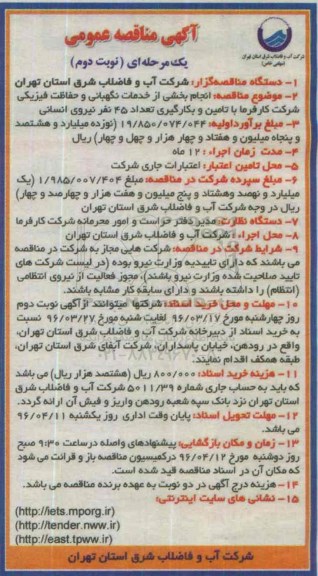 آگهی مناقصه عمومی
یک مرحله ای (نوبت دوم)
شرکت آب و فاضلاب شرق استان تهران
(سهامی خاص)
۱- دستگاه مناقصه‌گزار: شرکت آب و فاضلاب شرق استان تهران
۲- موضوع مناقصه: انجام بخشی از خدمات نگهبانی و حفاظت فیزیکی
شرکت کارفرما با تامین و بکارگیری تعداد ۴۵ نفر نیروی انسانی
۳- مبلغ برآورد اولیه: ۱۹/۸۵۰/۰۷۴/۰۴۴ (نوزده میلیارد و هشتصد
و پنجاه میلیون و هفتاد و چهار هزار و چهل و چهار) ریال
۴- مدت زمان اجراء: ۱۲ ماه
۵- محل تامین اعتبار: اعتبارات جاری شرکت
۶- مبلغ سپرده شرکت در مناقصه: مبلغ ۱/۹۸۵/۰۰۷/۴۰۴ (یک
میلیارد و نهصد وهشتاد و پنج میلیون و هفت هزار و چهارصد و چهار)
ریال در وجه شرکت آب و فاضلاب شرق استان تهران
۷- دستگاه نظارت: مدیر دفتر حراست و امور محرمانه شرکت کارفرما
۸- محل اجراء: شرکت آب و فاضلاب شرق استان تهران
۹- شرایط شرکت در مناقصه: شرکت هایی مجاز به شرکت در مناقصه
می باشند که دارای تاییدیه وزارت نیرو بوده (در لیست شرکت های
تایید صلاحیت شده وزارت نیرو باشند)، مجوز فعالیت از نیروی انتظامی
(انتظام) را داشته باشند و دارای سابقه کار مشابه باشند.
۱۰- مهلت و محل خرید اسناد: شرکتها میتوانند از آگهی نوبت دوم
روز چهارشنبه مورخ ۹۶/۰۳/۱۷ لغایت شنبه مورخ ۹۶/۰۳/۲۷ نسبت
به خرید اسناد از دبیرخانه شرکت آب و فاضلاب شرق استان تهران،
واقع در رودهن، خیابان پاسداران، شرکت آبفای شرق استان تهران،
طبقه همکف اقدام نمایند.
۱۱- هزینه خرید اسناد: ۸۰۰/۰۰۰ ریال (هشتصد هزار ریال) می باشد
که باید به حساب جاری شماره ۵۰۱۱/۳۹ شرکت آب و فاضلاب شرق
استان تهران نزد بانک سپه شعبه رودهن واریز و فیش آن ارائه گردد.
۱۲- مهلت تحویل اسناد: پایان وقت اداری روز یکشنبه ۹۶/۰۴/۱۱
می باشد.
۱۳- زمان و مکان بازگشایی: پیشنهادهای واصله درساعت ۹:۳۰ صبح
روز دوشنبه مورخ ۹۶/۰۴/۱۲ درکمیسیون مناقصه باز و قرائت می شود
که مکان آن در اسناد مناقصه قید شده است.
۱۴- هزینه درج آگهی در دو نوبت به عهده برنده مناقصه می باشد.
۱۵- نشانی های سایت اینترنتی:
(http://iets.mporg.ir)
(http://tender.nww.ir)
(http://east.tpww.ir)
شرکت آب و فاضلاب شرق استان تهران